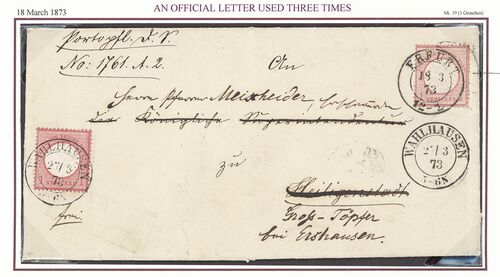 18 March 1873
AN OFFICIAL LETTER USED THREE TIMES
Mi. 19 (1 Groschen)
Portopfl. D. S.
No: 1761. A. 2.
An
Herrn Pfarrer Meixheider,
die Königliche Superintendentur
zu
Heiligenstadt
Groß-Töpfer
bei Ershausen.
frei.
ERFURT
18 3
73
WAHLHAUSEN
27/3
73
5-6N
WAHLHAUSEN
27/3
73